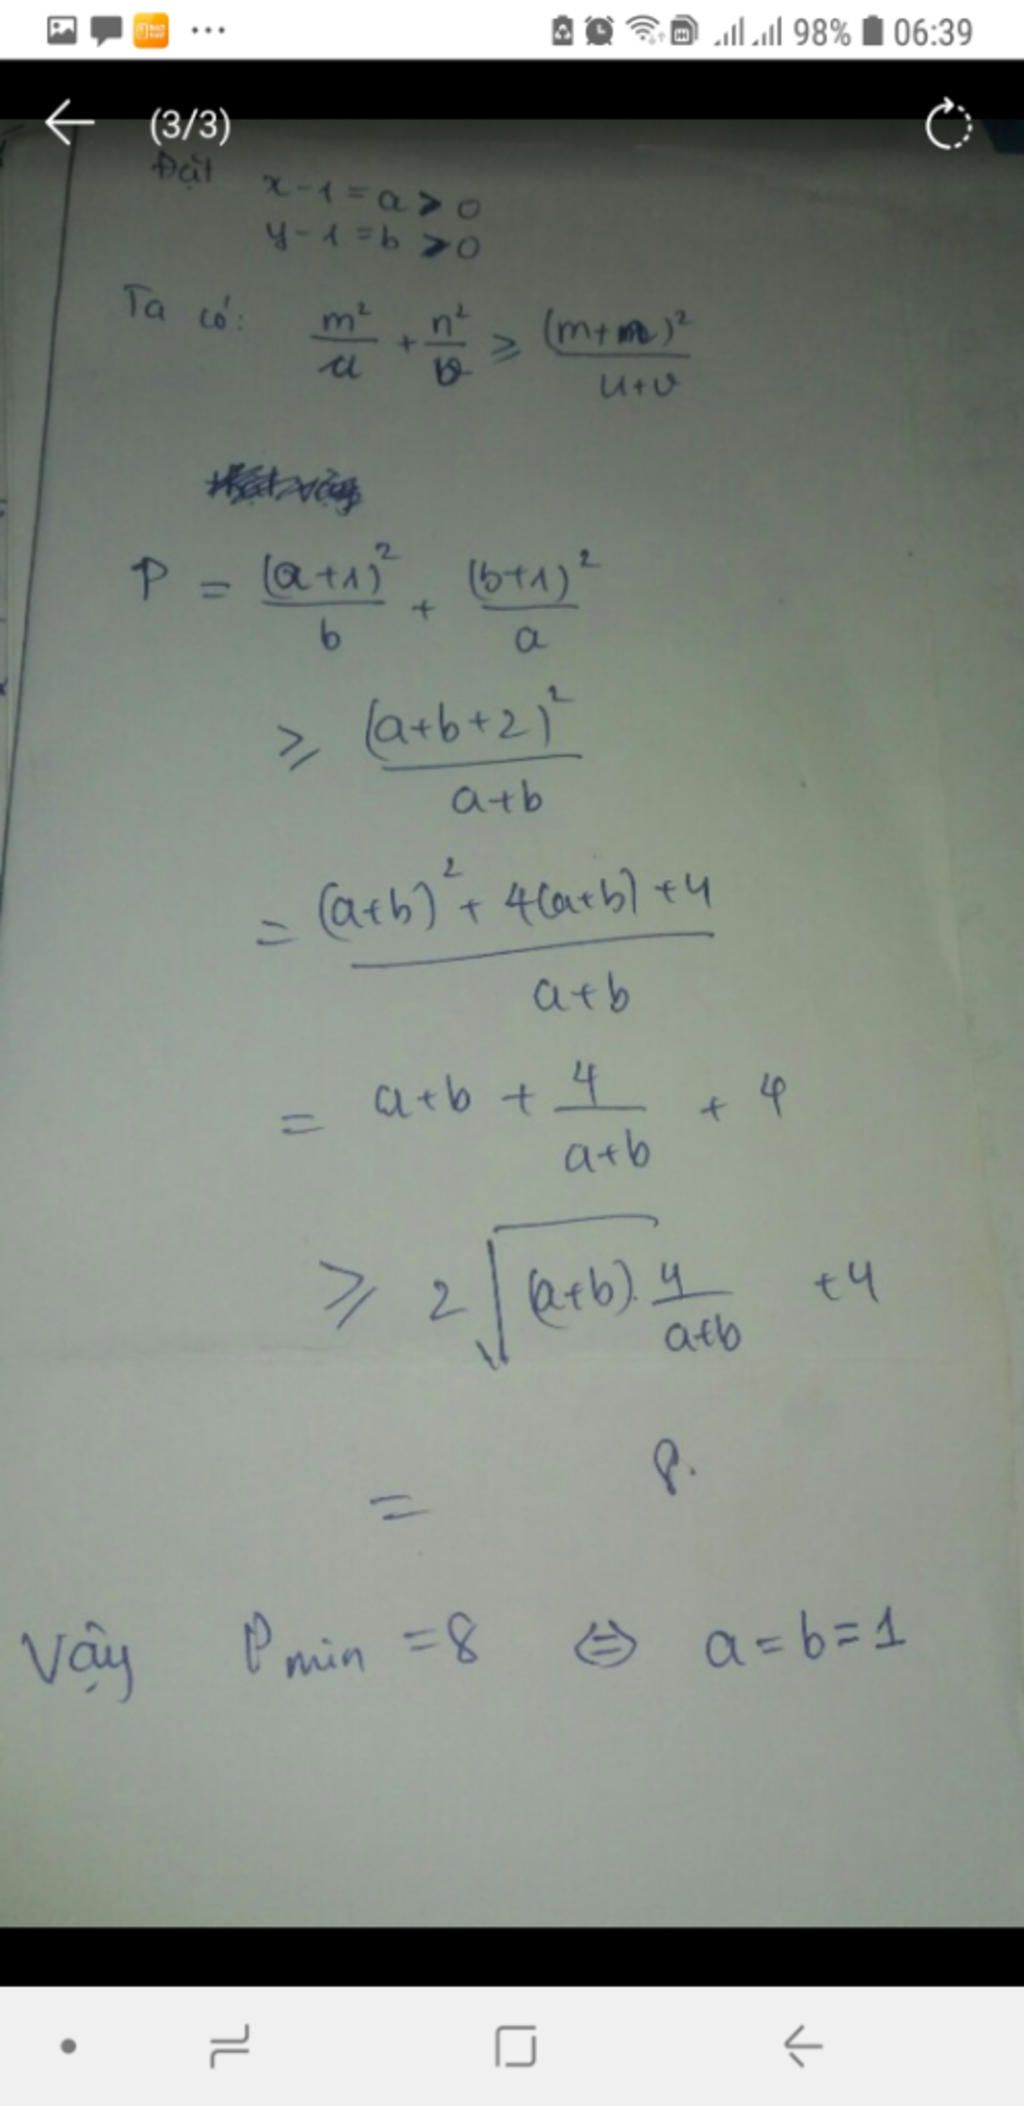 98% 06:39
(3/3)
Đặt x-1=a>0
y-1=b>0
Ta có: m²/u + n²/v ≥ (m+n)²/(u+v)
P = (a+1)²/b + (b+1)²/a
≥ (a+b+2)²/(a+b)
= ((a+b)² + 4(a+b) + 4)/(a+b)
= a+b + 4/(a+b) + 4
≥ 2√((a+b).4/(a+b)) + 4
= 8.
Vậy Pmin = 8 ⇔ a=b=1